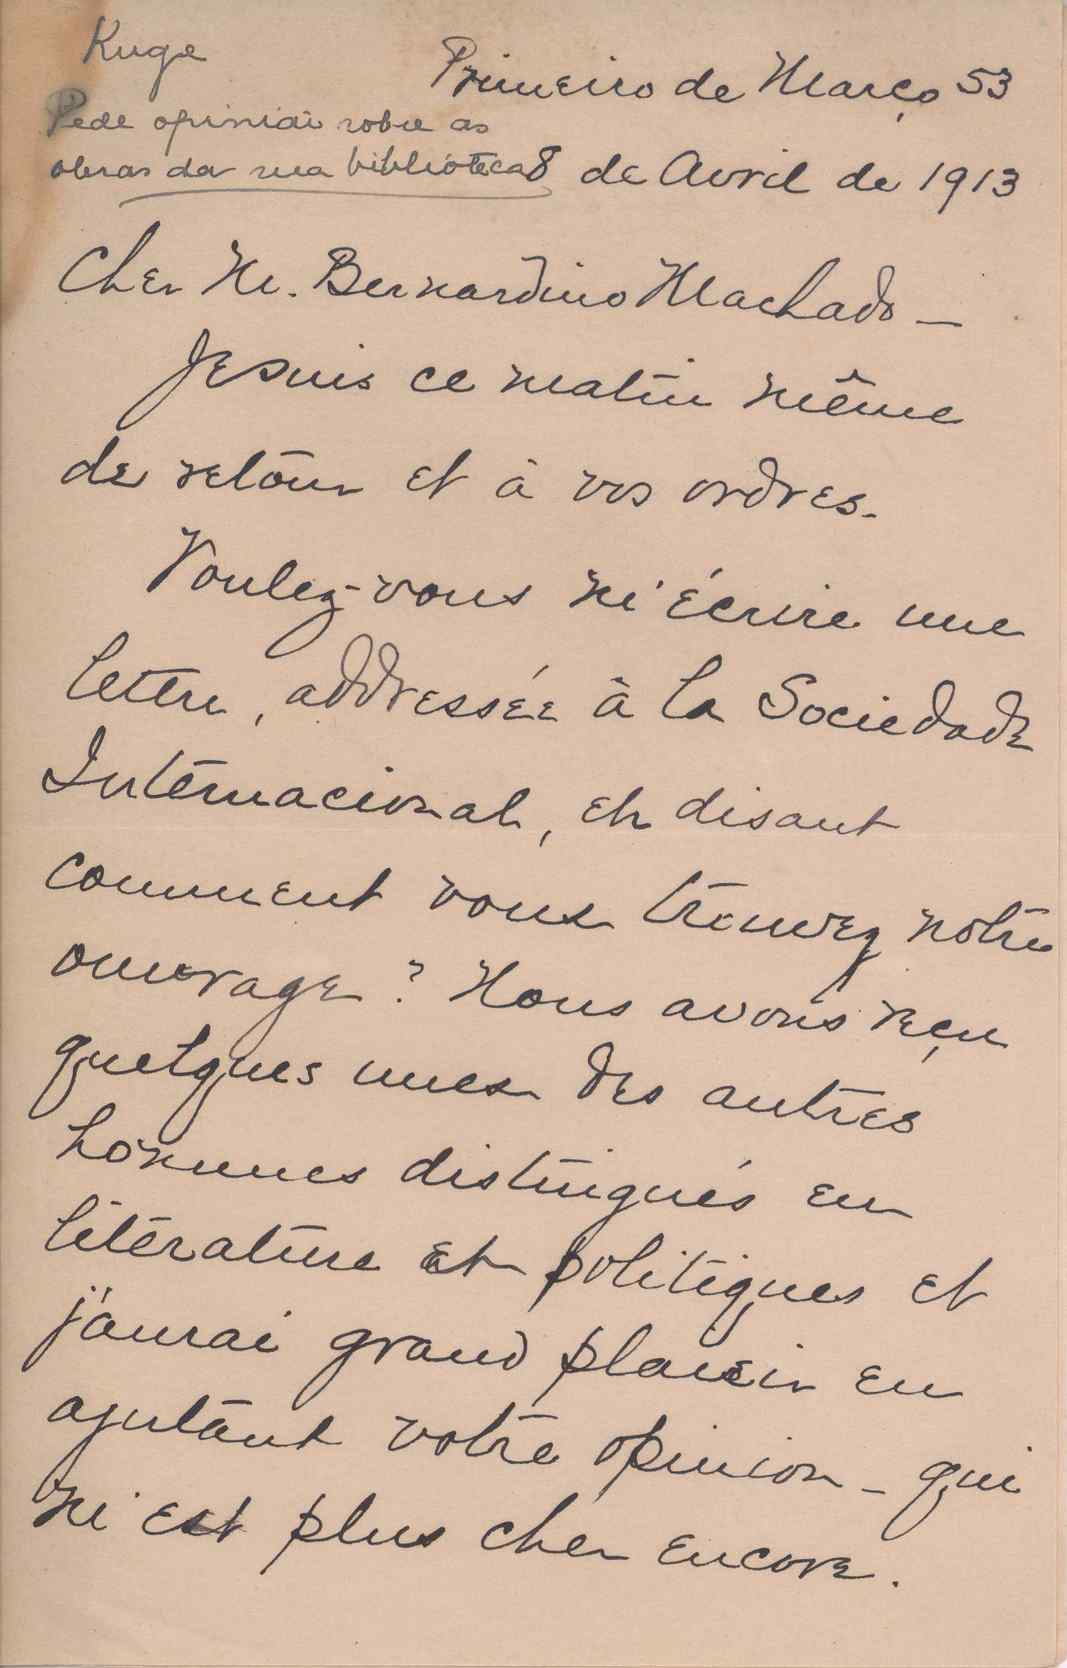 Kuge
Primeiro de Março 53
Pede opinião sobre as
obras da sua biblioteca
8 de Avril de 1913
Cher Mr. Bernardino Machado —
Je suis ce matin même
de retour et à vos ordres.
Voulez-vous m'écrire une
lettre, addressée à la Sociedade
Internacional, en disant
comment vous trouvez notre
ouvrage? Nous avons reçu
quelques unes des autres
hommes distingués en
litérature et politiques et
j'aurai grand plaisir en
ajutant votre opinion – qui
m'est plus cher encore.